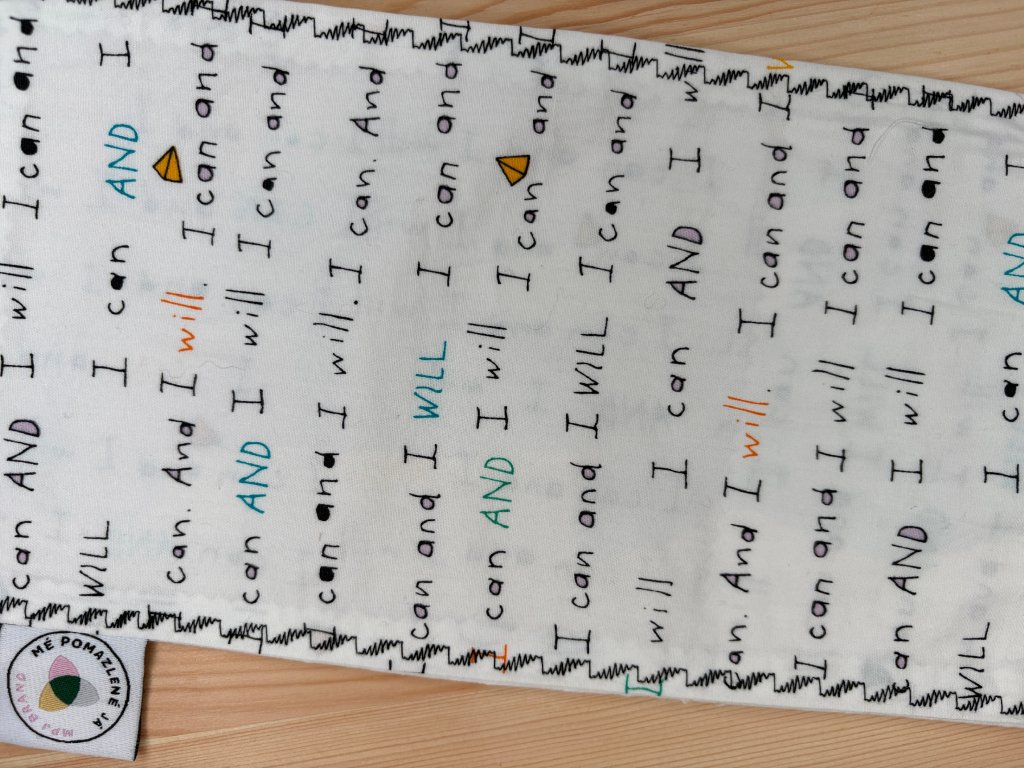 can AND I will I can and
WILL I can AND I
can. And I will I can and
can AND I will I can and
can and I will. I can. And
can and I WILL I can and I
I can AND I will I can and I
I can and I WILL I can and
will I can AND I will
an. And I will. I can and I
I can and I will I can and
an AND I will I can and
WILL I can AND I
MÉ POMAZLENÉ JÁ
MPJ BRAND